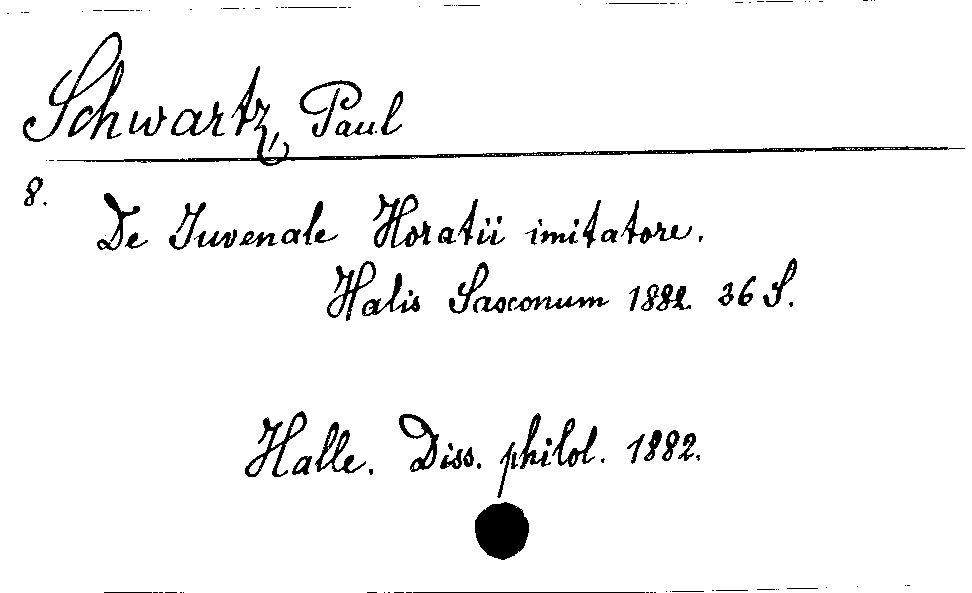 Schwartz, Paul
8.
De Iuvenale Horatii imitatore.
Halis Saxonum 1882. 36 S.
Halle. Diss. philol. 1882.